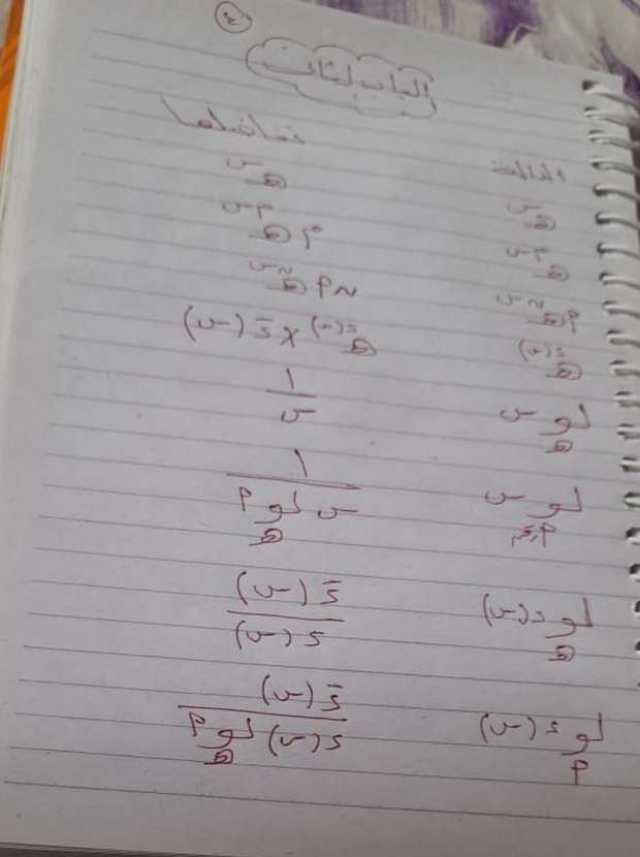 ٤
الباب الثالث
الدالة تفاضلها
هـ^س هـ^س
هـ^٢س ٢ هـ^٢س
أ هـ^ن س ن أ هـ^ن س
هـ^د(س) هـ^د(س) × دَ(س)
لو_هـ س ١ / س
لو_أ س ١ / س لو_هـ أ
لو_هـ د(س) دَ(س) / د(س)
لو_أ د(س) دَ(س) / د(س) لو_هـ أ